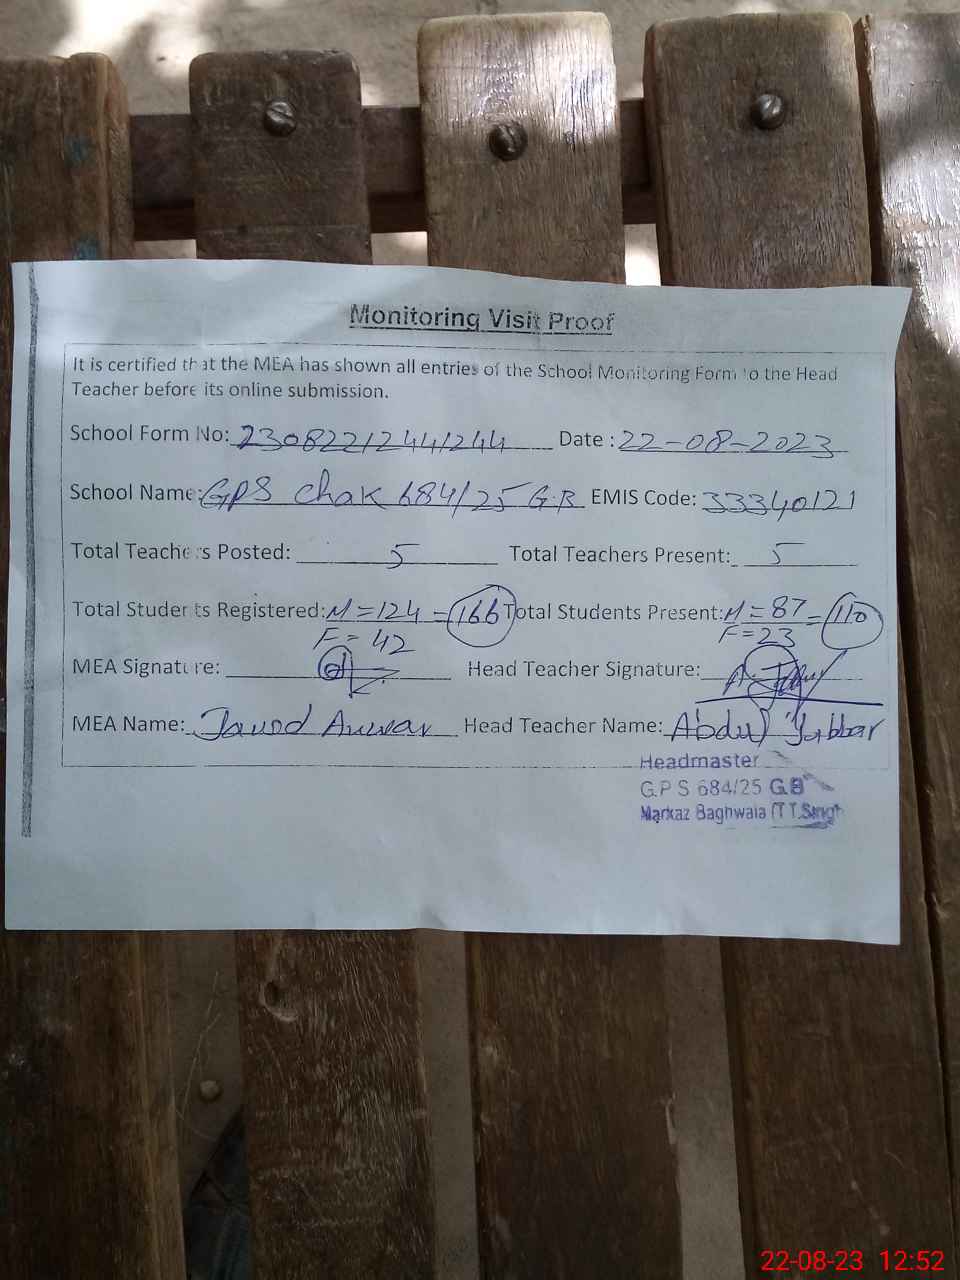 Monitoring Visit Proof
It is certified that the MEA has shown all entries of the School Monitoring Form to the Head
Teacher before its online submission.
School Form No: 23082212441244 Date : 22-08-2023
School Name: GPS Chak 684/25 G.B EMIS Code: 33340121
Total Teachers Posted: 5 Total Teachers Present: 5
Total Students Registered: M=124=166 Total Students Present: M=87=110
F=42 F=23
MEA Signature: Head Teacher Signature:
MEA Name: Javed Anwar Head Teacher Name: Abdul Jabbar
Headmaster
G.P S 684/25 G.B
Markaz Baghwala (T T.Singh
22-08-23 12:52